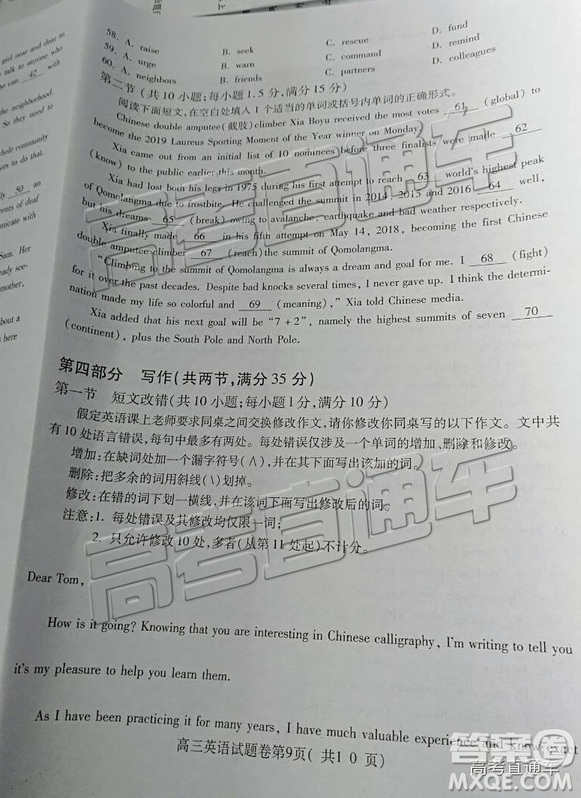 girl near and dear to
to talk to anyone who
can 42 with
the neighborhood.
So they need to
whole community
50 an
of deaf
communicate with
Sam. Her
already see-
the most
about a
here
58. A. raise B. seek C. rescue D. fund
59. A. urge B. warn C. command D. remind
60. A. neighbors B. friends C. partners D. colleagues
第二节 (共 10 小题;每小题 1.5 分,满分 15 分)
阅读下面短文,在空白处填入 1 个适当的单词或括号内单词的正确形式。
Chinese double amputee(截肢)climber Xia Boyu received the most votes 61 (global) to
become the 2019 Laureus Sporting Moment of the Year winner on Monday.
Xia came out from an initial list of 10 nominees before three finalists were made 62
(know) to the public earlier this month.
Xia had lost both his legs in 1975 during his first attempt to reach 63 world's highest peak
of Qomolangma due to frostbite. He challenged the summit in 2014, 2015 and 2016 64 well,
but his dreams 65 (break) owing to avalanche, earthquake and bad weather respectively.
Xia finally made 66 in his fifth attempt on May 14, 2018, becoming the first Chinese
double amputee climber 67 (reach) the summit of Qomolangma.
"Climbing to the summit of Qomolangma is always a dream and goal for me. I 68 (fight)
for it over the past decades. Despite bad knocks several times, I never gave up. I think the determi-
nation made my life so colorful and 69 (meaning)," Xia told Chinese media.
Xia added that his next goal will be "7+2", namely the highest summits of seven 70
(continent), plus the South Pole and North Pole.
第四部分 写作(共两节,满分 35 分)
第一节 短文改错(共 10 小题;每小题 1 分,满分 10 分)
假定英语课上老师要求同桌之间交换修改作文,请你修改你同桌写的以下作文。文中共
有 10 处语言错误,每句中最多有两处。每处错误仅涉及一个单词的增加、删除和修改。
增加:在缺词处加一个漏字符号(∧),并在其下面写出该加的词。
删除:把多余的词用斜线(\)划掉。
修改:在错的词下划一横线,并在该词下面写出修改后的词。
注意:1. 每处错误及其修改均仅限一词;
2. 只允许修改 10 处,多者(从第 11 处起)不计分。
Dear Tom,
How is it going? Knowing that you are interesting in Chinese calligraphy, I'm writing to tell you
it's my pleasure to help you learn them.
As I have been practicing it for many years, I have much valuable experience and know exact
高三英语试题卷第9页( 共1 0 页)
高考直通车
高考直通车
高考直通车
答案圈
MXQE.COM